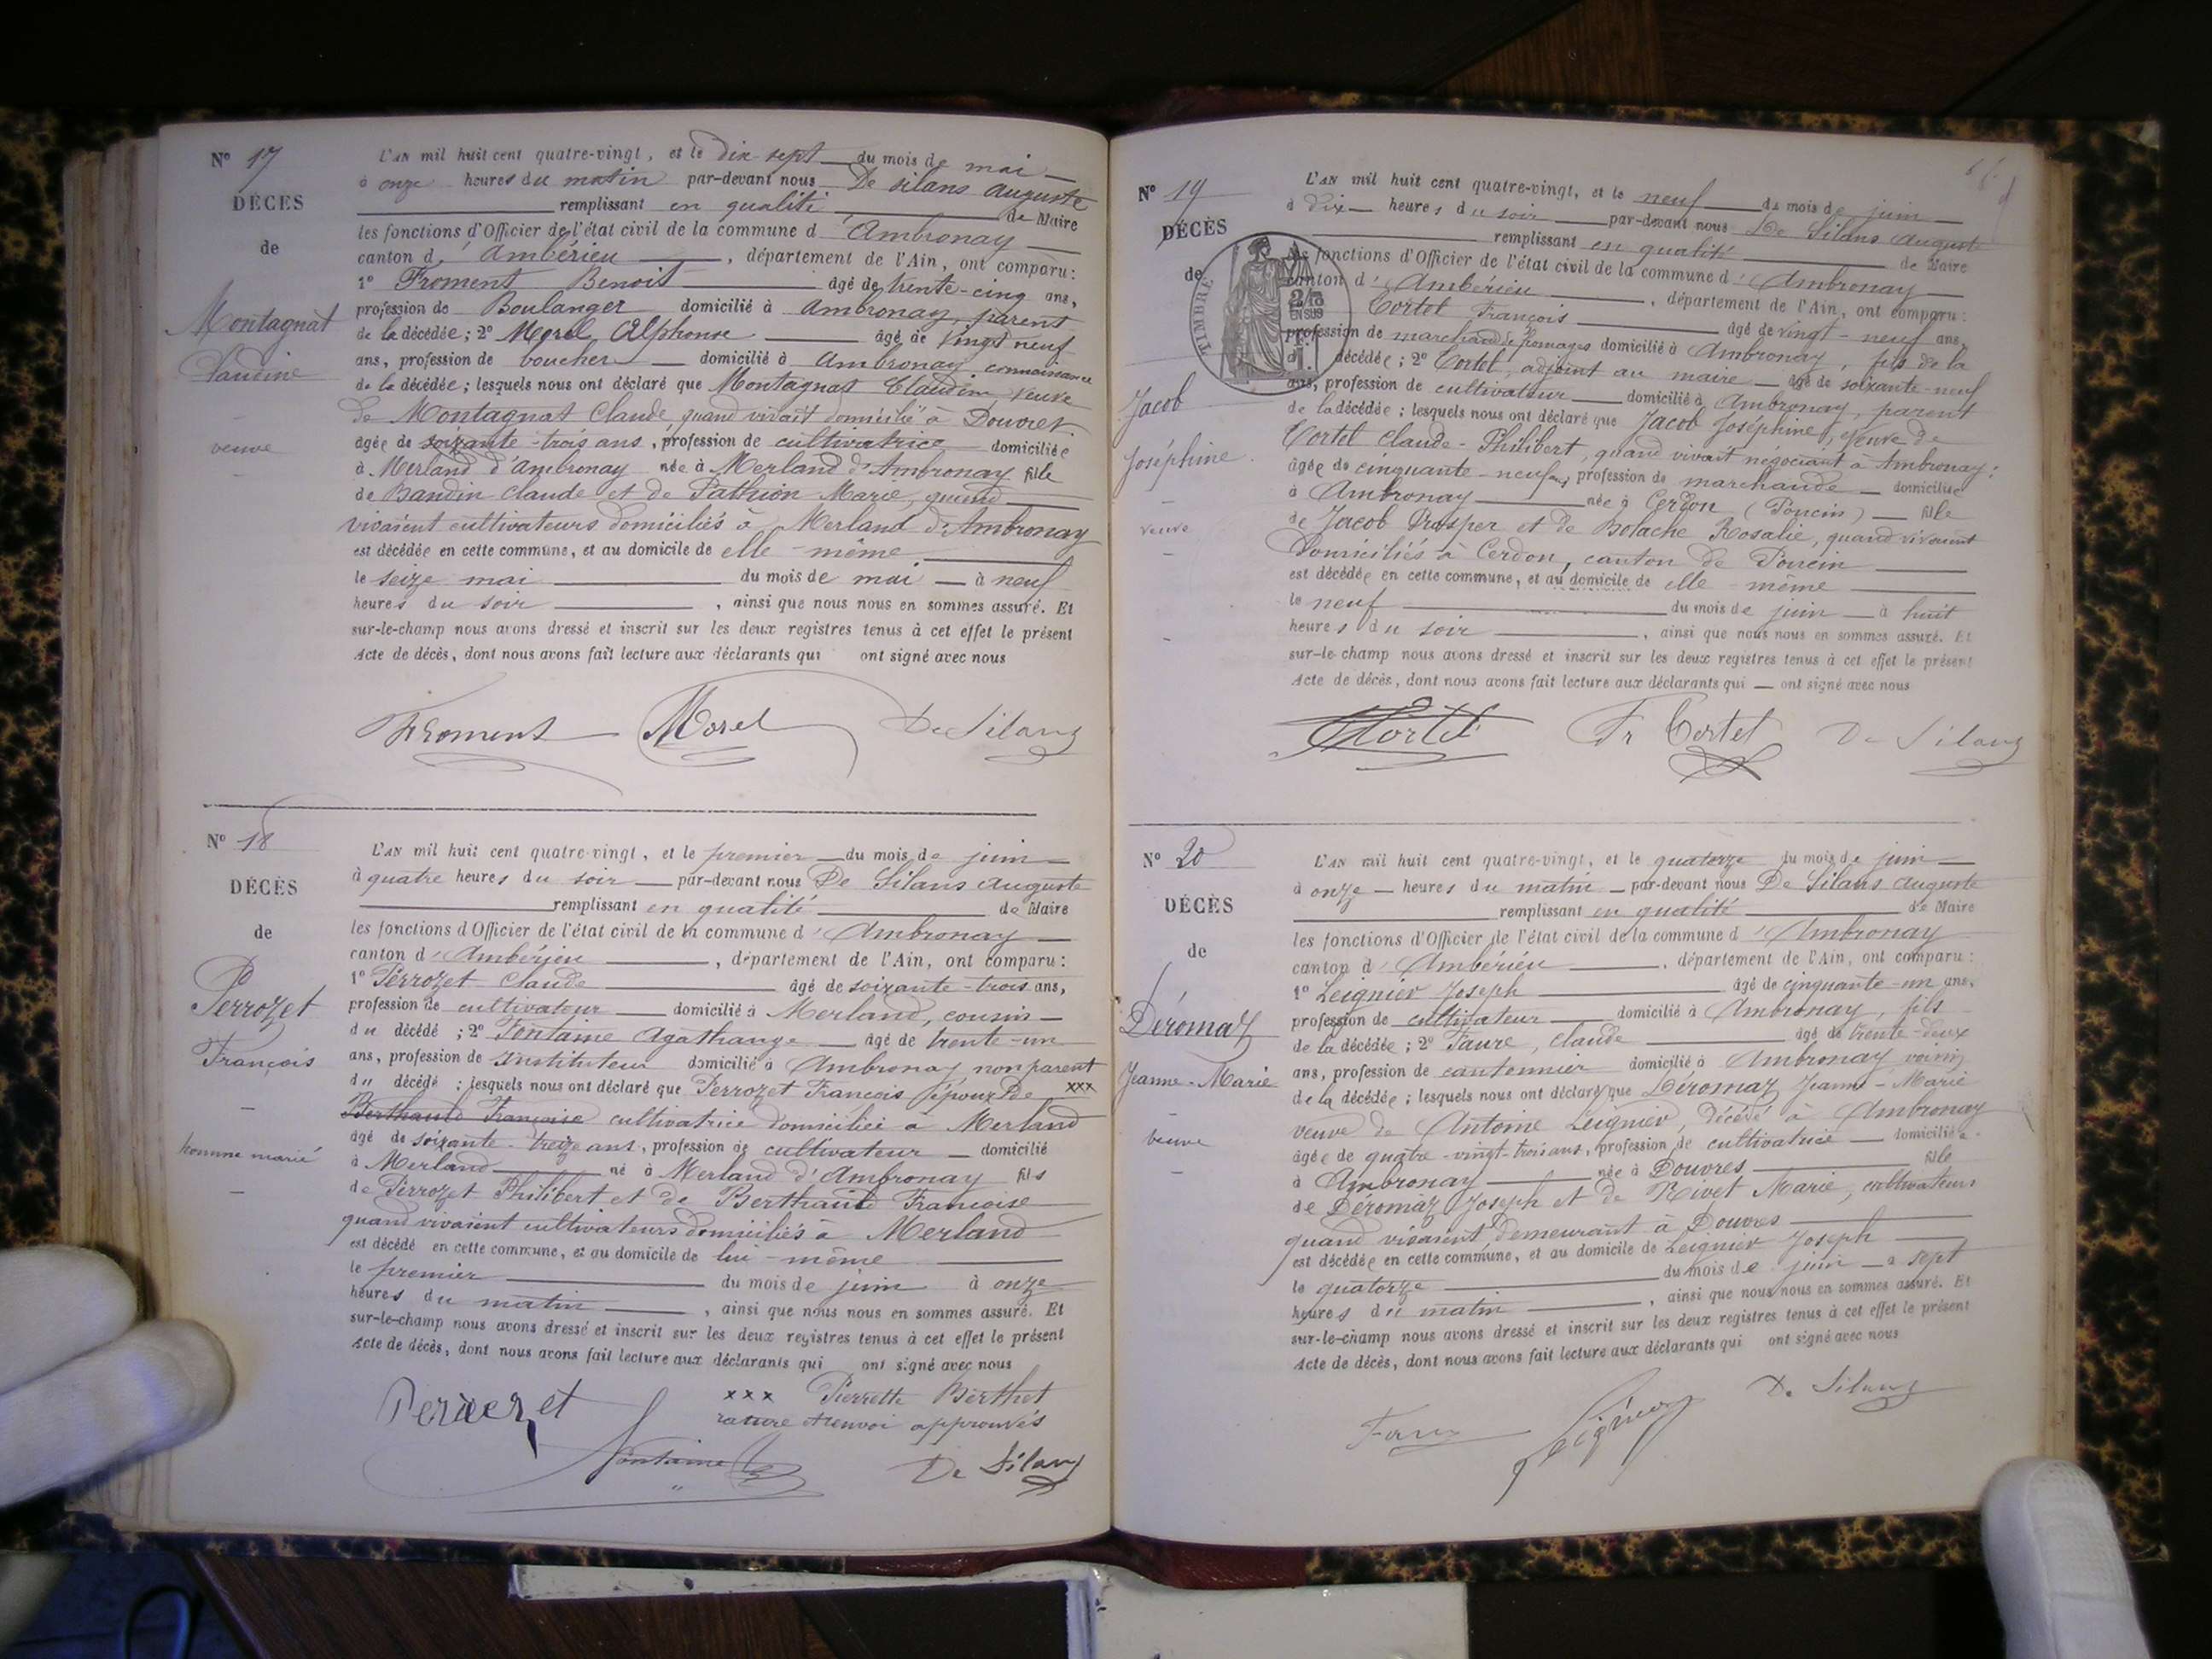 Nº 17
DÉCÈS
de
Montagnat
Claudine
veuve
L'AN mil huit cent quatre-vingt, et le dix sept du mois de mai
à onze heures du matin par-devant nous De Silans Auguste
remplissant en qualité de Maire
les fonctions d'Officier de l'état civil de la commune d'Ambronay
canton d'Ambérieu, département de l'Ain, ont comparu:
1º Froment Benoit âgé de trente-cinq ans,
profession de Boulanger domicilié à Ambronay, parent
de la décédée; 2º Morel Alphonse âgé de vingt neuf
ans, profession de boucher domicilié à Ambronay connaissance
de la décédée; lesquels nous ont déclaré que Montagnat Claudine, veuve
de Montagnat Claude, quand vivait domicilié à Douvres
âgée de soixante-trois ans, profession de cultivatrice domiciliée
à Merland d'Ambronay née à Merland d'Ambronay fille
de Bandin Claude et de Marie, quand
vivaient cultivateurs domiciliés à Merland d'Ambronay
est décédée en cette commune, et au domicile de elle-même
le seize mai du mois de mai à neuf
heures du soir, ainsi que nous nous en sommes assuré. Et
sur-le-champ nous avons dressé et inscrit sur les deux registres tenus à cet effet le présent
Acte de décès, dont nous avons fait lecture aux déclarants qui ont signé avec nous
Froment Morel De Silans
Nº 18
DÉCÈS
de
Perrozet
François
homme marié
L'AN mil huit cent quatre-vingt, et le premier du mois de juin
à quatre heures du soir par-devant nous De Silans Auguste
remplissant en qualité de Maire
les fonctions d'Officier de l'état civil de la commune d'Ambronay
canton d'Ambérieu, département de l'Ain, ont comparu:
1º Perrozet Claude âgé de soixante-trois ans,
profession de cultivateur domicilié à Merland, cousin
du décédé; 2º Fontaine Agathange âgé de trente-un
ans, profession de Instituteur domicilié à Ambronay non parent
du décédé; lesquels nous ont déclaré que Perrozet François époux de xxx
Berthaud Françoise cultivatrice domiciliée à Merland
âgé de soixante-treize ans, profession de cultivateur domicilié
à Merland né à Merland d'Ambronay fils
de Perrozet Philibert et de Berthaud Françoise
quand vivaient cultivateurs domiciliés à Merland
est décédé en cette commune, et au domicile de lui-même
le premier du mois de juin à onze
heures du matin, ainsi que nous nous en sommes assuré. Et
sur-le-champ nous avons dressé et inscrit sur les deux registres tenus à cet effet le présent
Acte de décès, dont nous avons fait lecture aux déclarants qui ont signé avec nous
xxx Pierrette Berthet
rature et renvoi approuvés
Fontaine De Silans
Nº 19
DÉCÈS
de
TIMBRE
2/10
EN SUS
Jacob
Joséphine
veuve
L'AN mil huit cent quatre-vingt, et le neuf du mois de juin
à dix heures du soir par-devant nous De Silans Auguste
remplissant en qualité de Maire
les fonctions d'Officier de l'état civil de la commune d'Ambronay
canton d'Ambérieu, département de l'Ain, ont comparu:
Tortel François âgé de vingt-neuf ans,
profession de marchand de fromages domicilié à Ambronay, fils de la
décédée; 2º Tortel, adjoint au maire âgé de soixante-neuf
ans, profession de cultivateur domicilié à Ambronay, parent
de la décédée; lesquels nous ont déclaré que Jacob Joséphine, veuve de
Tortel Claude-Philibert, quand vivait négociant à Ambronay;
âgée de cinquante-neuf ans, profession de marchande domiciliée
à Ambronay née à Cerdon (Poncin) fille
de Jacob Prosper et de Bolache Rosalie, quand vivaient
domiciliés à Cerdon, canton de Poncin
est décédée en cette commune, et au domicile de elle-même
le neuf du mois de juin à huit
heures du soir, ainsi que nous nous en sommes assuré. Et
sur-le-champ nous avons dressé et inscrit sur les deux registres tenus à cet effet le présent
Acte de décès, dont nous avons fait lecture aux déclarants qui ont signé avec nous
Tortel Fr Tortel De Silans
Nº 20
DÉCÈS
de
Déromaz
Jeanne-Marie
veuve
L'AN mil huit cent quatre-vingt, et le quatorze du mois de juin
à onze heures du matin par-devant nous De Silans Auguste
remplissant en qualité de Maire
les fonctions d'Officier de l'état civil de la commune d'Ambronay
canton d'Ambérieu, département de l'Ain, ont comparu:
1º Leignier Joseph âgé de cinquante-un ans,
profession de cultivateur domicilié à Ambronay, fils
de la décédée; 2º Faure, Claude âgé de trente-deux
ans, profession de cantonnier domicilié à Ambronay voisin
de la décédée; lesquels nous ont déclaré que Déromaz Jeanne-Marie
veuve de Antoine Leignier, décédé à Ambronay
âgée de quatre-vingt-trois ans, profession de cultivatrice domiciliée
à Ambronay née à Douvres fille
de Déromaz Joseph et de Rivet Marie, cultivateurs
quand vivaient, demeurant à Douvres
est décédée en cette commune, et au domicile de Leignier Joseph
le quatorze du mois de juin à sept
heures du matin, ainsi que nous nous en sommes assuré. Et
sur-le-champ nous avons dressé et inscrit sur les deux registres tenus à cet effet le présent
Acte de décès, dont nous avons fait lecture aux déclarants qui ont signé avec nous
De Silans